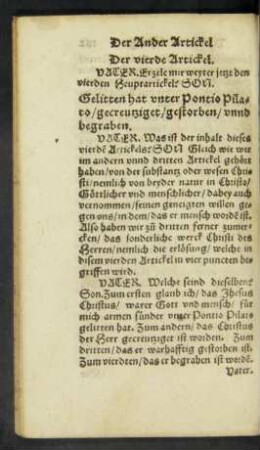 Der Ander Artickel
Der vierde Artickel.
VATER. Erzele mir weyter jetzt den
vierden Heuptartickel? SON.
Gelitten hat vnter Pontio Pila
to/gecreutziget/gestorben/vnnd
begraben.
VATER. Was ist der inhalt dieses
vierdē Artickels? SON Gleich wie wir
im andern vnnd dritten Artickel gehört
haben/von der substantz oder wesen Chri
sti/nemlich von beyder natur in Christo/
Göttlicher vnd menschlicher/dabey auch
vernommen/seinen geneigten willen ge
gen vns/in dem/das er mensch wordē ist.
Also haben wir zu dritten ferner zumer
cken/das sonderliche werck Christi des
Herren/nemlich die erlösung/welche in
disem vierden Artickel in vier puncten be
griffen wird.
VATER. Welche seind dieselben?
Son. Zum ersten glaub ich/das Jhesus
Christus/warer Gott vnd mensch/für
mich armen sünder vnter Pontio Pilato
gelitten hat. Zum andern/das Christus
der Herr gecreutziget ist worden. Zum
dritten/das er warhafftig gestorben ist.
Zum vierdten/das er begraben ist wordē.
Vater.